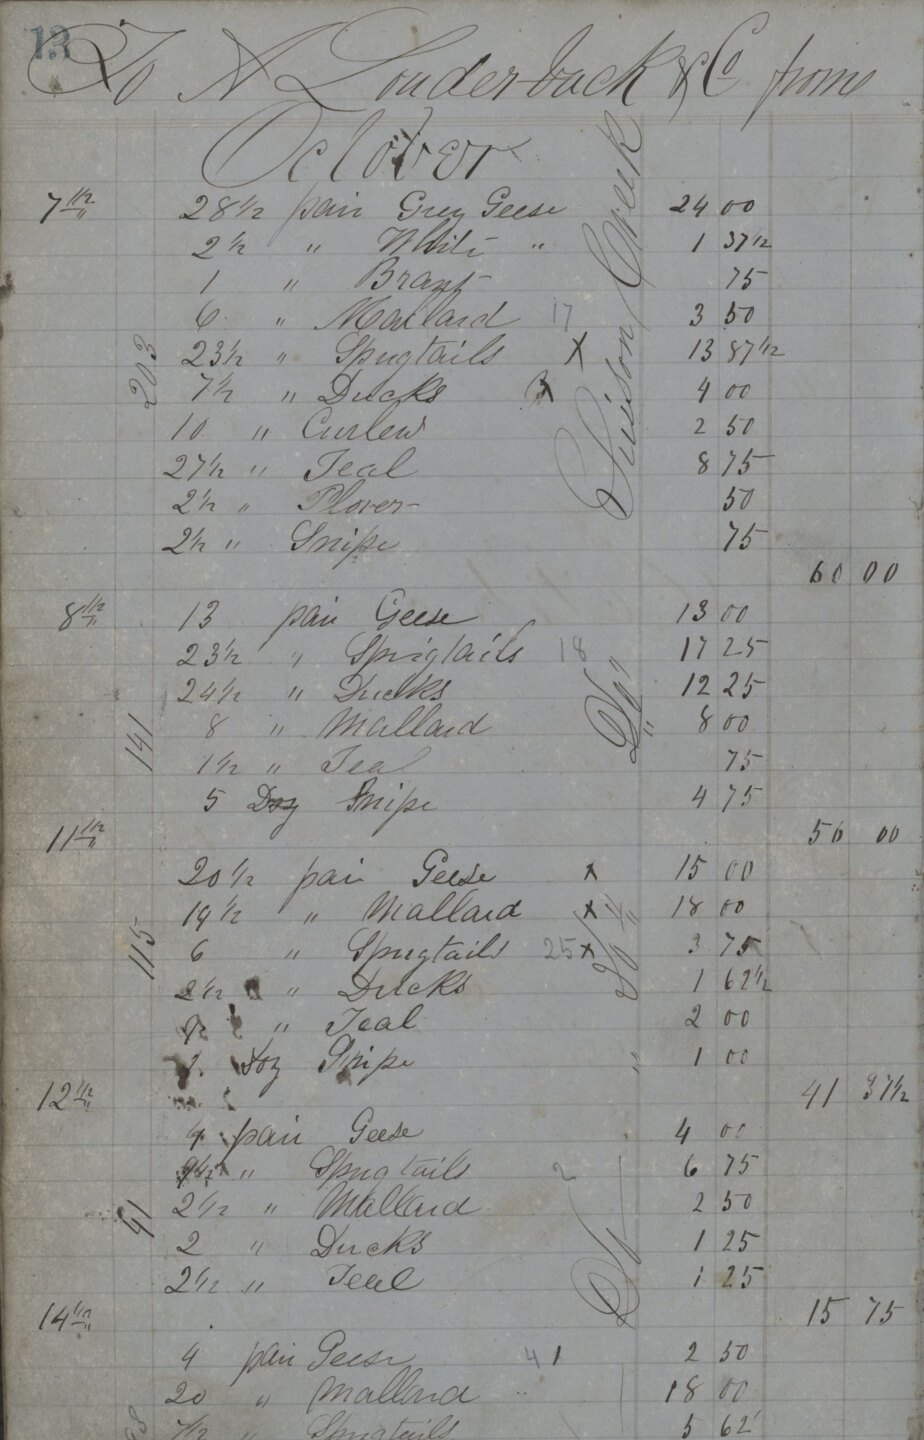 13
To A Louderback & Co from
October
7th 28 1/2 pair Grey Geese 24 00
2 1/2 " White " 1 37 1/2
1 " Brant 75
6 " Mallard 17 3 50
23 1/2 " Sprigtails X 13 87 1/2
7 1/2 " Ducks X 4 00
10 " Curlew 2 50
27 1/2 " Teal 8 75
2 1/2 " Plover 50
2 1/2 " Snipe 75
203
Suison Creek
60 00
8th 13 pair Geese 13 00
23 1/2 " Sprigtails 18 17 25
24 1/2 " Ducks 12 25
8 " Mallard 8 00
1 1/2 " Teal 75
5 Doz Snipe 4 75
141
Do
56 00
11th
20 1/2 pair Geese x 15 00
19 1/2 " Mallard x 18 00
6 " Sprigtails 25 x 3 75
2 1/2 " Ducks 1 62 1/2
" Teal 2 00
1 Doz Snipe 1 00
115
Do
41 37 1/2
12th
4 pair Geese 4 00
9 1/2 " Sprigtails 2 6 75
2 1/2 " Mallard 2 50
2 " Ducks 1 25
2 1/2 " Teal 1 25
41
Do
15 75
14th
4 pair Geese 41 2 50
20 " Mallard 18 00
7 1/2 " Sprigtails 5 62